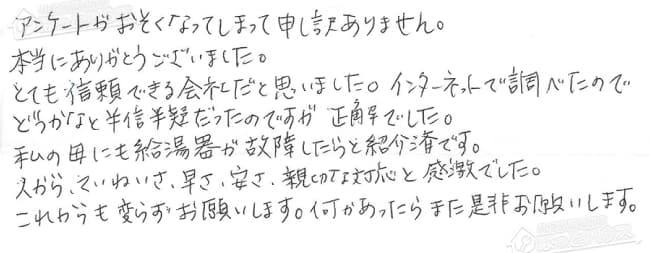 アンケートがおそくなってしまって申し訳ありません。
本当にありがとうございました。
とても信頼できる会社だと思いました。インターネットで調べたので
どうかなと半信半疑だったのですが正解でした。
私の母にも給湯器が故障したらと紹介済です。
人から、ていねいさ、早さ、安さ、親切な対応と感激でした。
これからも変らずお願いします。何かあったらまた是非お願いします。